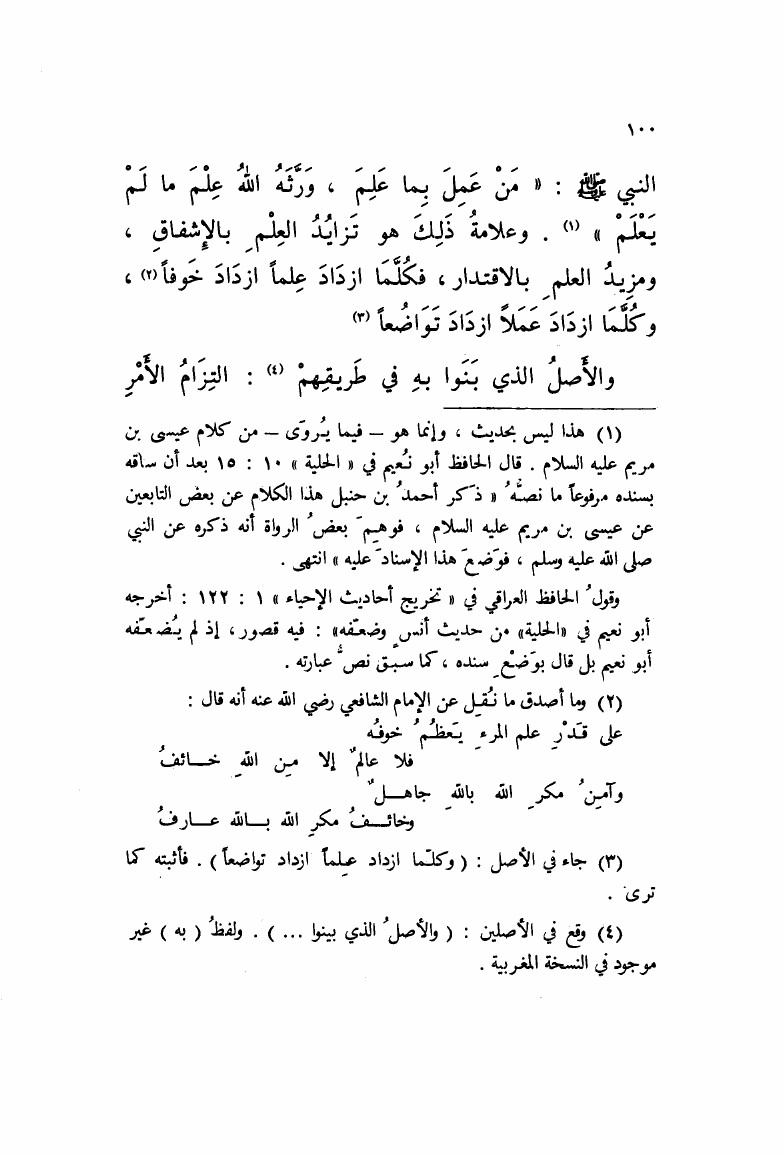 ١٠٠
النبي ﷺ : « مَنْ عَمِلَ بِما عَلِمَ ، وَرَّثَهُ اللهُ عِلْمَ ما لَمْ
يَعْلَمْ » (١) . وعلامةُ ذَلِكَ هو تَزايُدُ العِلْمِ بالإِشفاقِ ،
ومزيدُ العلمِ بالاقتدار ، فكُلَّمَا ازدَادَ عِلماً ازدَادَ خَوفاً (٢) ،
وكُلَّمَا ازدَادَ عَمَلاً ازدَادَ تَوَاضُعاً (٣)
والأَصلُ الذي بَنَوا بهِ في طَريقِهِمْ (٤) : التِزَامُ الأَمْرِ
(١) هذا ليس بحديث ، وإنما هو – فيما يُروَى – من كلام عيسى بن
مريم عليه السلام . قال الحافظ أبو نُعيم في « الحلية » ١٠ : ١٥ بعد أن ساقه
بسنده مرفوعاً ما نصُّه ُ « ذكر أحمدُ بن حنبل هذا الكلام عن بعض التابعين
عن عيسى بن مريم عليه السلام ، فوهِمَ بعضُ الرواة أنه ذكره عن النبي
صلى الله عليه وسلم ، فوَضعَ هذا الإسنادَ عليه » انتهى .
وقولُ الحافظ العراقي في « تخريج أحاديث الإحياء » ١ : ١٢٢ : أخرجه
أبو نعيم في «الحلية» من حديث أنسٍ وضعّفه» : فيه قصور ، إذ لم يُضعّفه
أبو نعيم بل قال بوَضْعِ سنده ، كما سبق نصُّ عبارته .
(٢) وما أصدق ما نُقِل عن الإمام الشافعي رضي الله عنه أنه قال :
على قَدْرِ علم المرءِ يَعظُمُ خوفُه
فلا عالمٌ إلا مِن اللهِ خائفُ
وآمِنُ مكرِ الله باللهِ جاهلٌ
وخائفُ مكرِ الله بالله عارفُ
(٣) جاء في الأصل : ( وكلّما ازداد عِلماً ازداد تواضعاً ) . فأثبته كما
ترى .
(٤) وقع في الأصلين : ( والأصلُ الذي بينوا ... ) . ولفظُ ( به ) غير
موجود في النسخة المغربية .